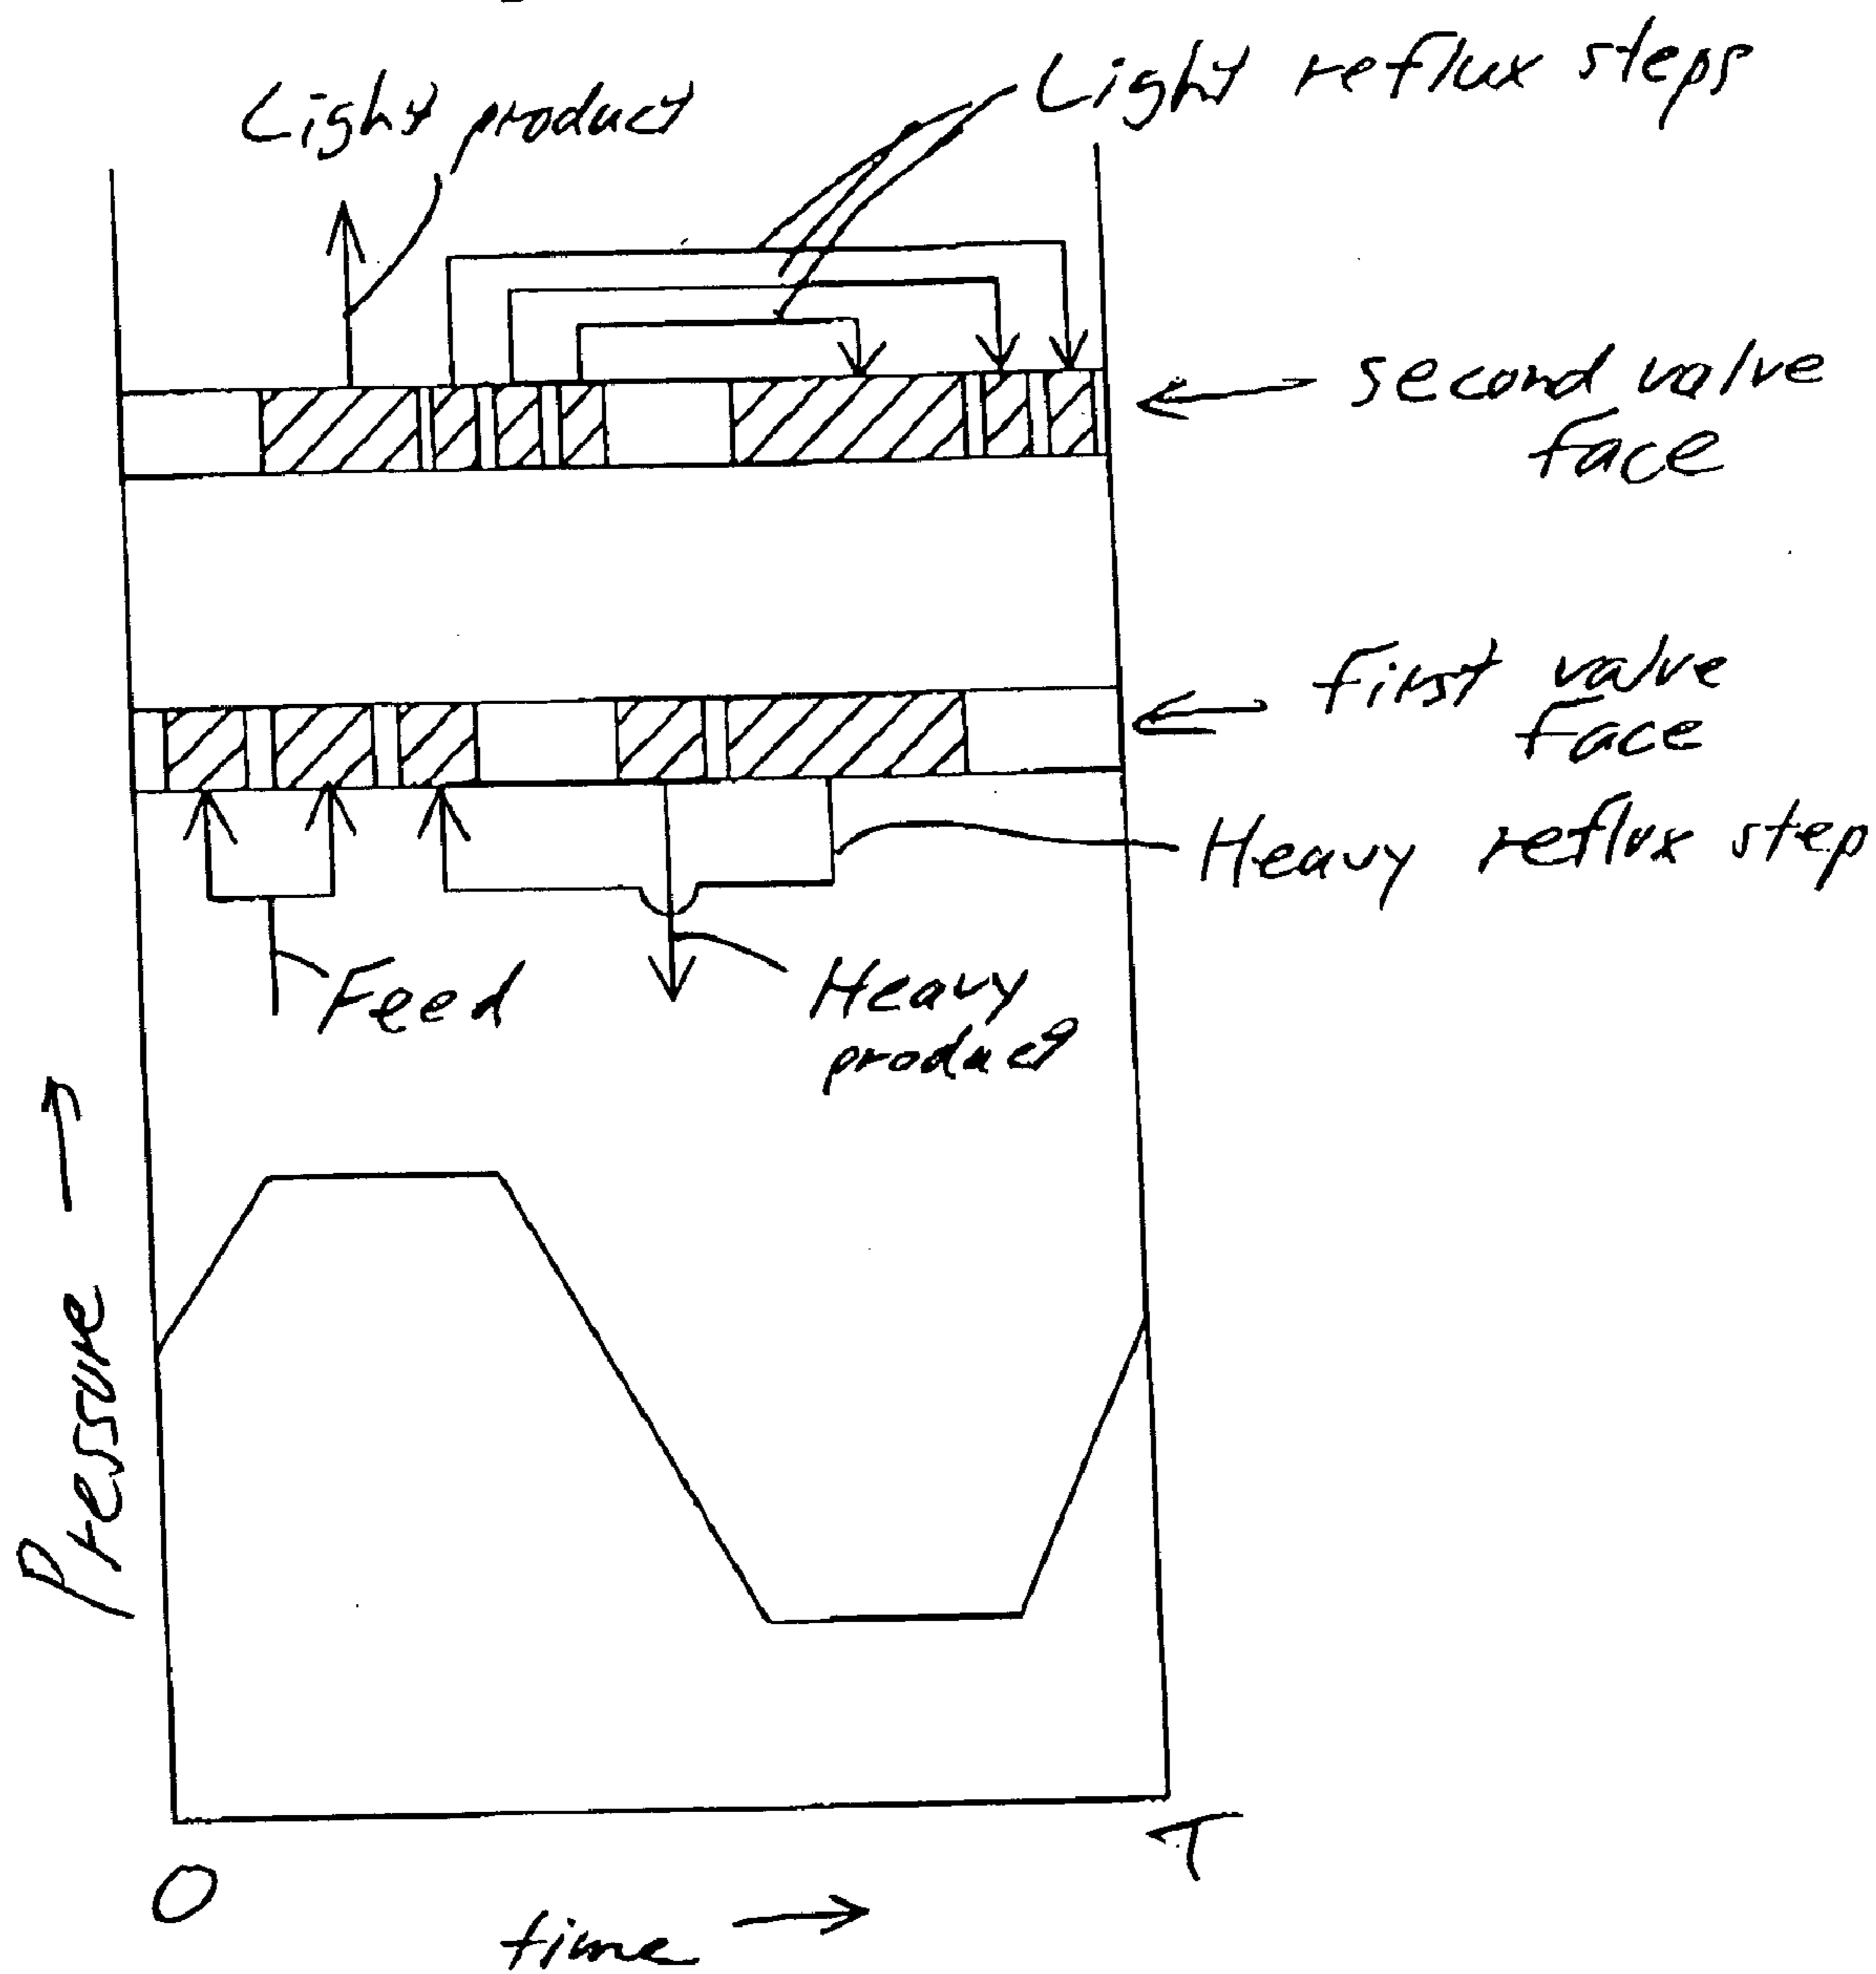 Light product
Light reflux steps
second valve
face
first valve
face
Heavy reflux step
Feed
Heavy
product
Pressure
0
T
time